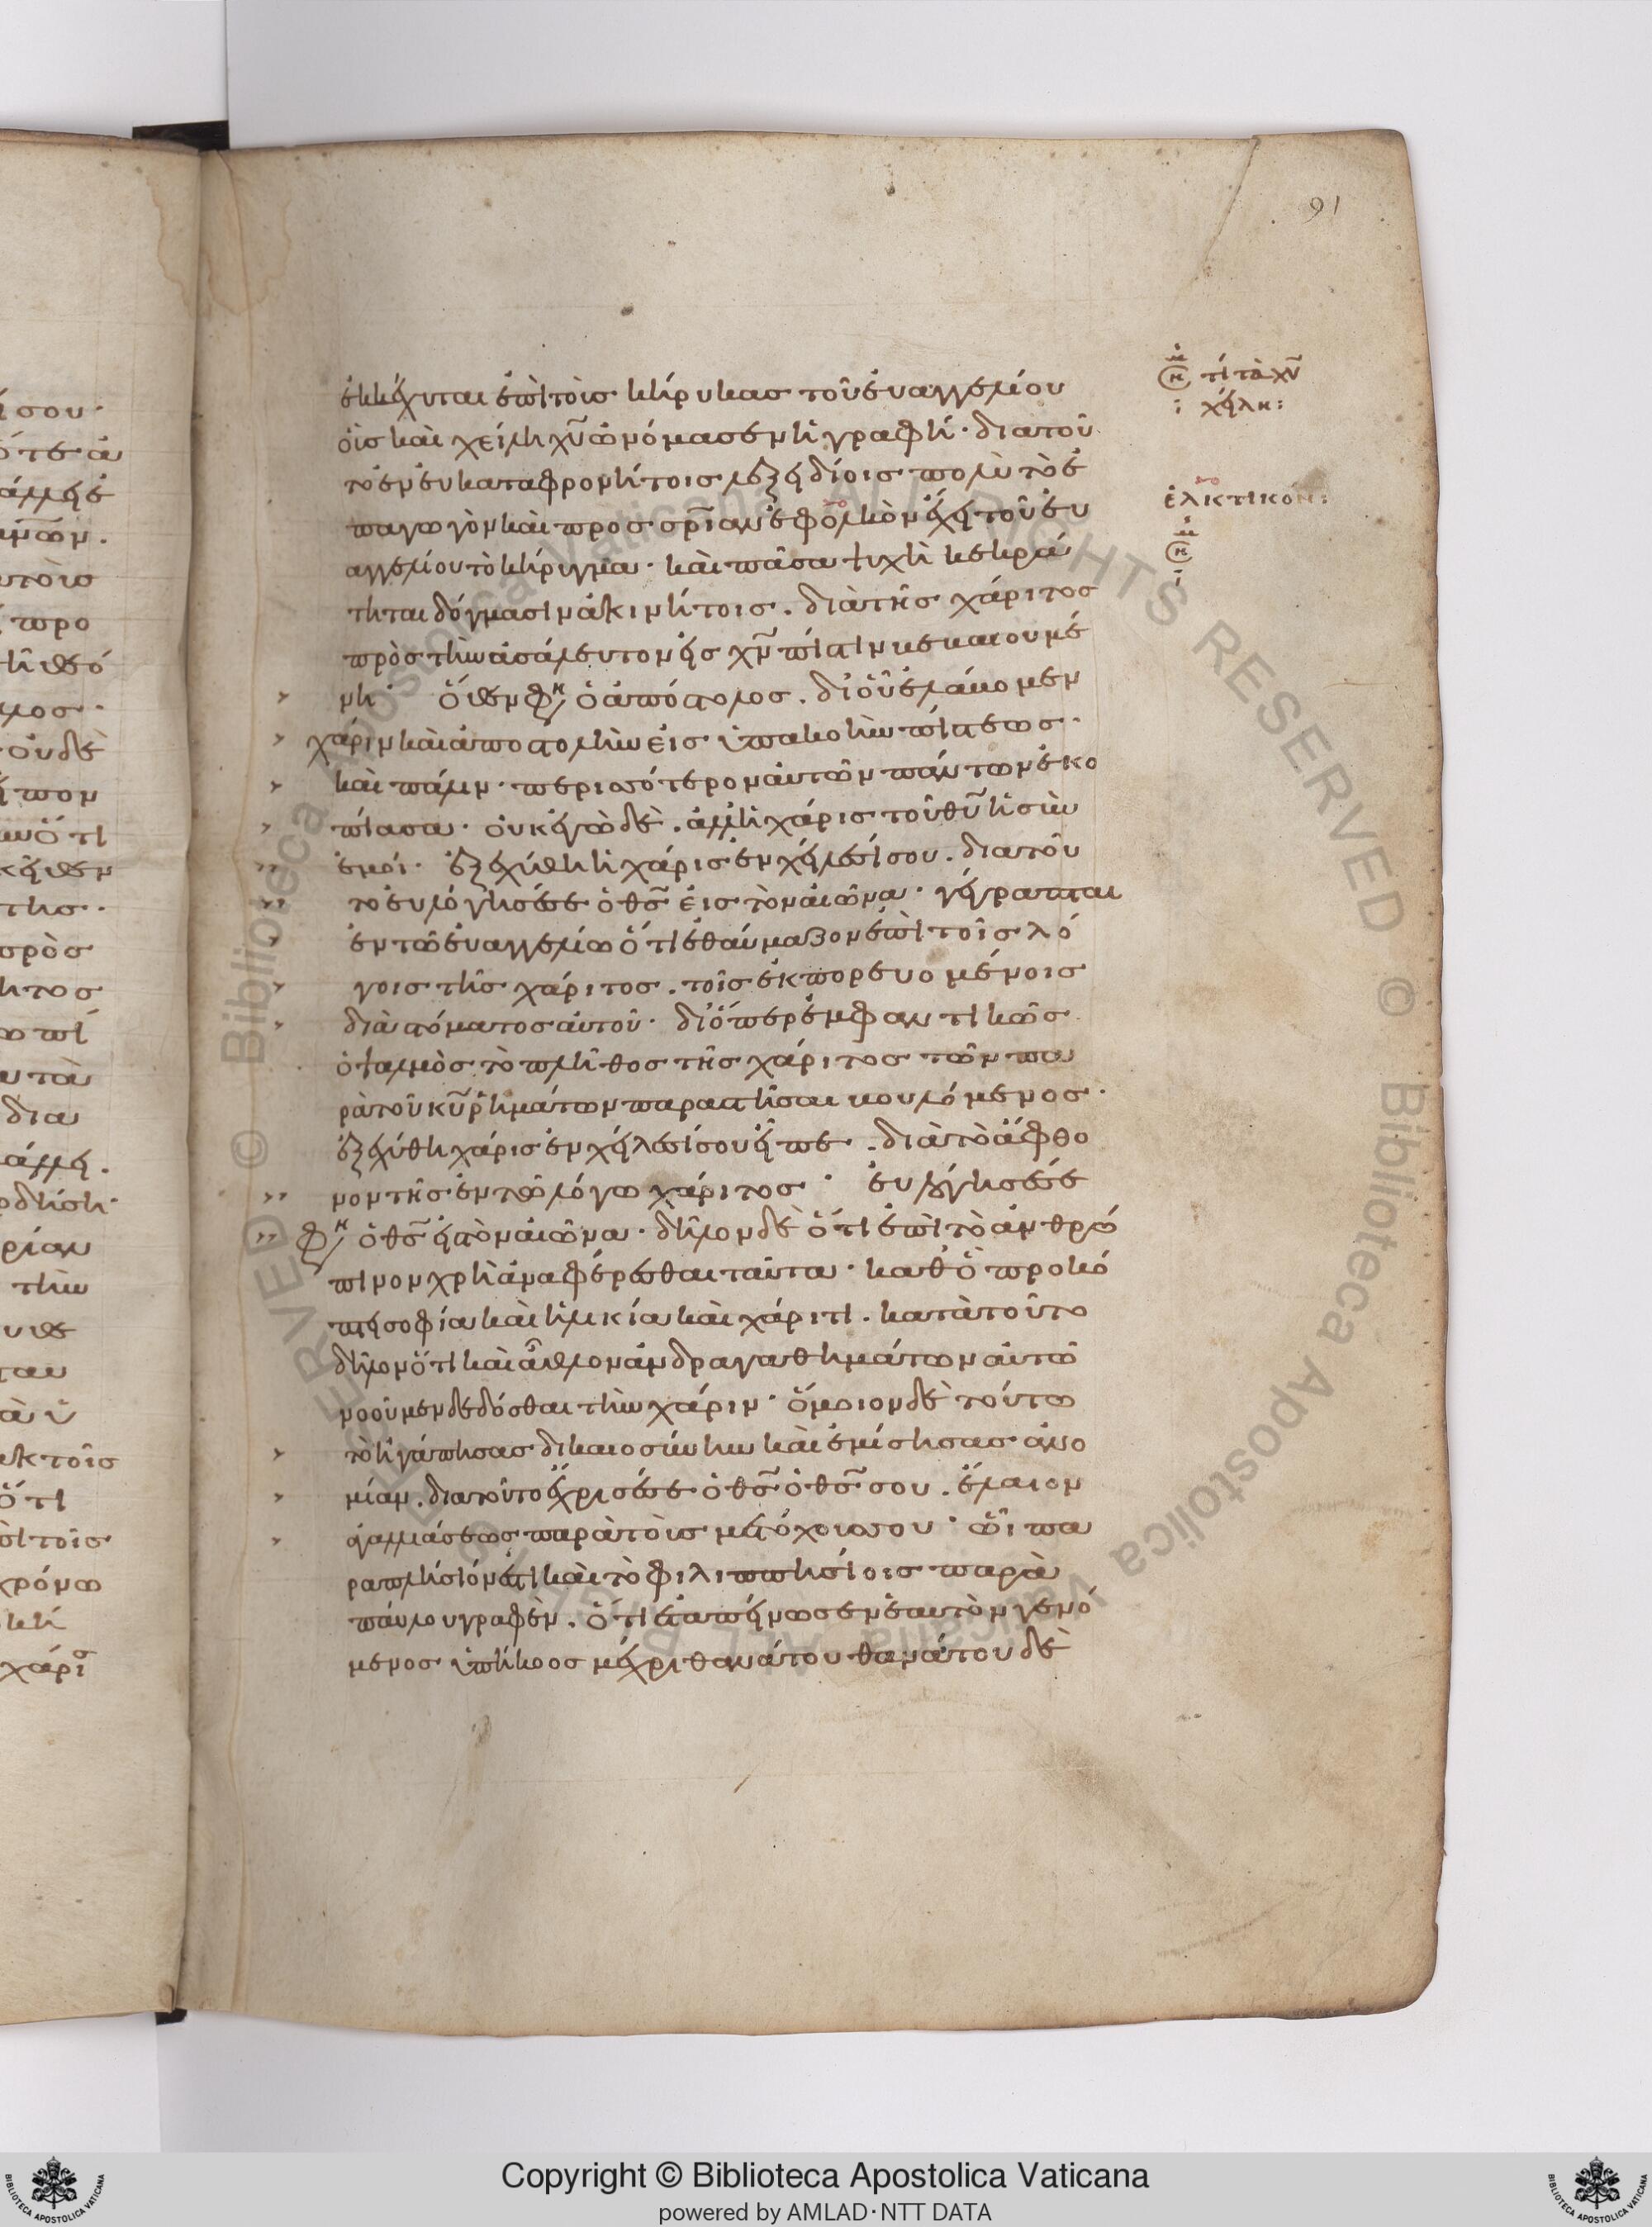 91
ἐκκέχυται ἐπὶ τοὺς κήρυκας τοῦ εὐαγγελίου
οὓς καὶ χείλη χῦ ὠνόμασεν ἡ γραφή· διατοῦ
το ἐν εὐκαταφρονήτοις λεξειδίοις πολὺ τὸ ἐ
παγωγὸν καὶ πρὸς σρίαν ἐφολκὸν ἔχει τοῦ εὐ
αγγελίου τὸ κήρυγμα· καὶ πᾶσα ψυχὴ κεκρά
τηται δόγμασιν ἀκινήτοις. διὰ τῆς χάριτος
πρὸς τὴν ἀσάλευτον εἰς χν πίστιν βεβαιουμέ
νη· ὅθεν φη ὁ ἀπόστολος. δι' οὗ ἐλάβομεν
χάριν καὶ ἀποστολὴν εἰς ὑπακοὴν πίστεως·
καὶ πάλιν· περισσότερον αὐτῶν πάντων ἐκο
πίασα· οὐκ ἐγὼ δὲ. ἀλλ' ἡ χάρις τοῦ θῦ ἡ σὺν
ἐμοί· ἐξεχύθη ἡ χάρις ἐν χείλεσί σου. διατοῦ
το εὐλόγησέ σε ὁ θς εἰς τὸν αἰῶνα· γέγραπται
ἐν τῶ εὐαγγελίω ὅτι ἐθαύμαζον ἐπὶ τοῖς λό
γοις τῆς χάριτος. τοῖς ἐκπορευομένοις
διὰ στόματος αὐτοῦ· διόπερ ἐμφαντικῶς
ὁ ψαλμὸς τὸ πλῆθος τῆς χάριτος τῶν πα
ρὰ τοῦ κῦ ῥημάτων παραστῆσαι βουλόμενος·
ἐξεχύθη χάρις ἐν χείλεσί σου εἶπε. διὰ τὸ ἄφθο
νον τῆς ἐν τῶ λόγω χάριτος· εὐλόγησέ σε
φη ὁ θς εἰς τὸν αἰῶνα· δῆλον δὲ ὅτι ἐπὶ τὸ ἀνθρώ
πινον χρὴ ἀναφέρεσθαι ταῦτα· καθ' ὃ προκό
πτει σοφία καὶ ἡλικία καὶ χάριτι. κατὰ τοῦτο
δῆλον ὅτι καὶ ἆθλον ἀνδραγαθημάτων αὐτῶ
νοοῦμεν δεδόσθαι τὴν χάριν· ὅμοιον δὲ τούτω
τὸ ἠγάπησας δικαιοσύνην καὶ ἐμίσησας ἀνο
μίαν. διατοῦτο ἔχρισέ σε ὁ θς ὁ θς σου. ἔλαιον
ἀγαλλιάσεως παρὰ τοὺς μετόχους σου· ὧι πα
ραπλήσιόν ἐστι καὶ τὸ φιλιππησίοις παρὰ
παύλου γραφὲν. ὅτι ἐταπείνωσεν ἑαυτὸν γενό
μενος ὑπήκοος μέχρι θανάτου θανάτου δὲ
τί τὰ χῦ
χείλη:
ἑλκτικόν:
Copyright © Biblioteca Apostolica Vaticana
powered by AMLAD·NTT DATA